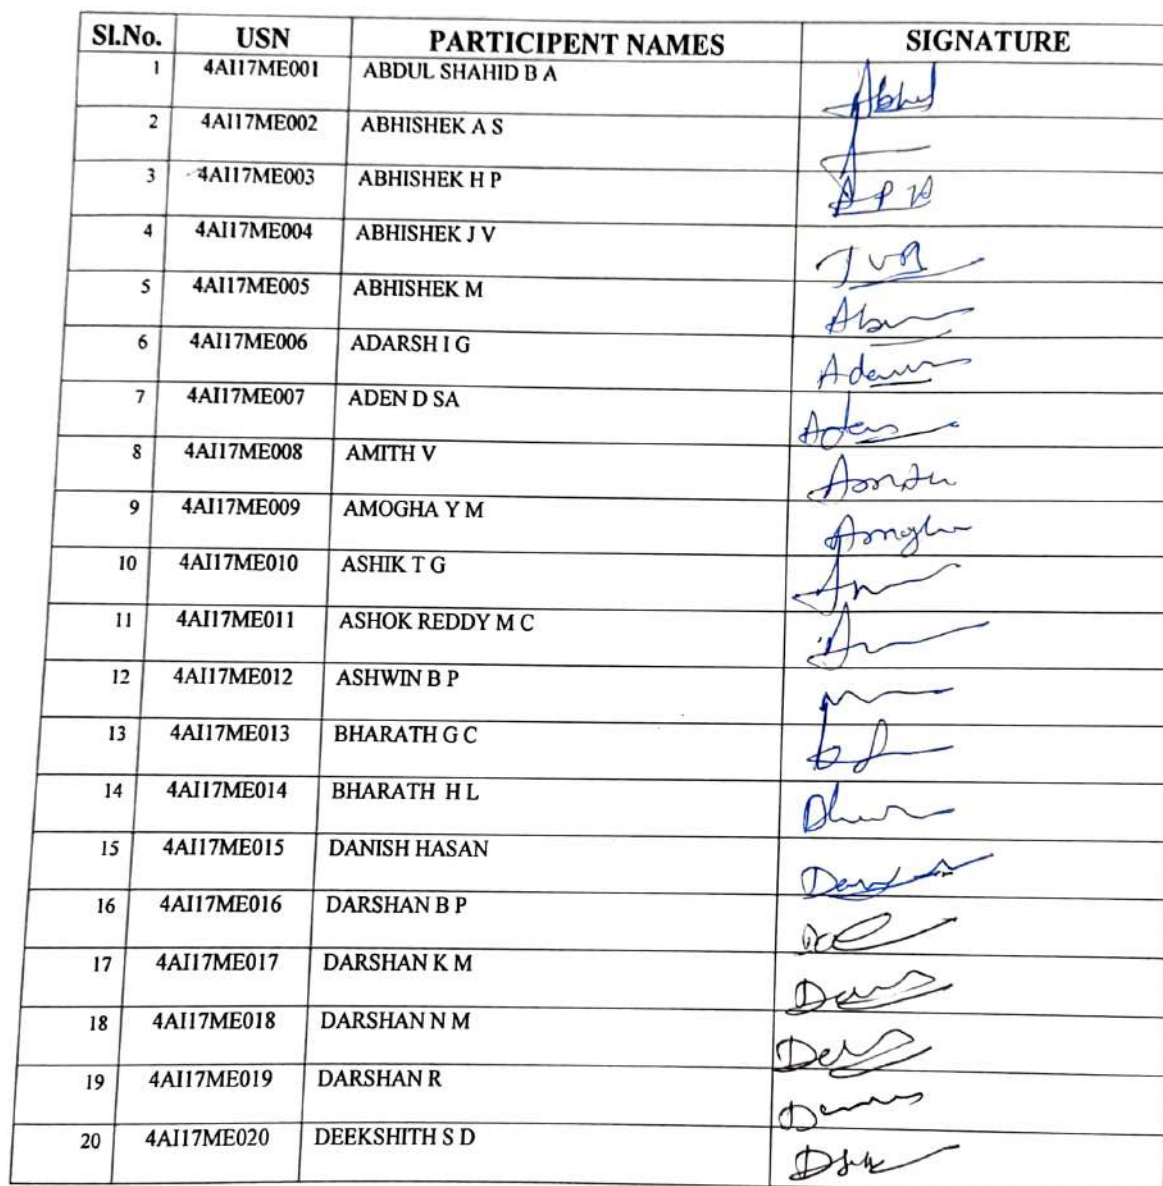 Sl.No. USN PARTICIPENT NAMES SIGNATURE
1 4AI17ME001 ABDUL SHAHID B A
2 4AI17ME002 ABHISHEK A S
3 4AI17ME003 ABHISHEK H P
4 4AI17ME004 ABHISHEK J V
5 4AI17ME005 ABHISHEK M
6 4AI17ME006 ADARSH I G
7 4AI17ME007 ADEN D SA
8 4AI17ME008 AMITH V
9 4AI17ME009 AMOGHA Y M
10 4AI17ME010 ASHIK T G
11 4AI17ME011 ASHOK REDDY M C
12 4AI17ME012 ASHWIN B P
13 4AI17ME013 BHARATH G C
14 4AI17ME014 BHARATH H L
15 4AI17ME015 DANISH HASAN
16 4AI17ME016 DARSHAN B P
17 4AI17ME017 DARSHAN K M
18 4AI17ME018 DARSHAN N M
19 4AI17ME019 DARSHAN R
20 4AI17ME020 DEEKSHITH S D